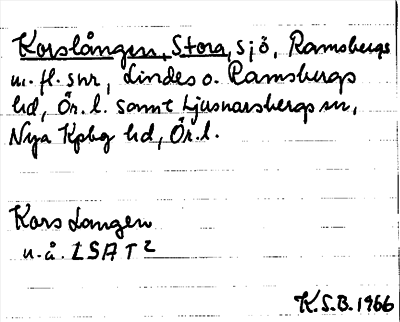 Korslången, Stora, sjö, Ramsbergs
m. fl. snr, Lindes o. Ramsbergs
hd, Ör. l. samt Ljusnarsbergs sn,
Nya Kpbg hd, Ör. l.
Kors Langen
u. å. LSA T 2
K.S.B. 1966